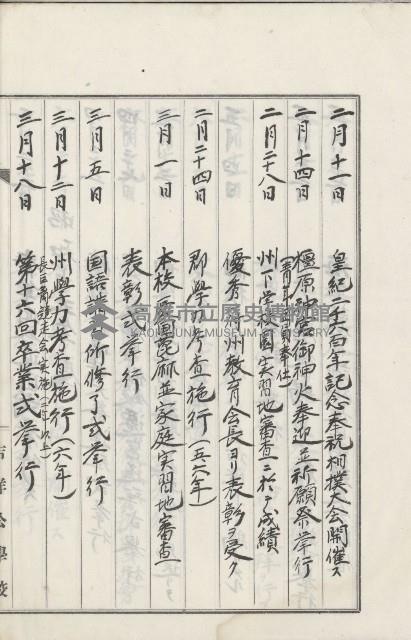 二月十一日 皇紀二千六百年記念奉祝相撲大会開催ス
二月十四日 橿原神宮御神火奉迎並祈願祭挙行
(青年団員奉仕)
二月二十八日 州下学校園実習地審査ニ於テ成績
優秀 州教育会長ヨリ表彰ヲ受ク
二月二十四日 郡学力考査施行(五、六年)
三月一日 本校 蓖麻並家庭実習地審査
表彰式挙行
三月五日 国語講習所修了式挙行
三月十三日 州学力考査施行(六年)
長距離競走会実施
三月十八日 第十六回卒業式挙行
高雄市立歷史博物館
KAOHSIUNG MUSEUM OF HISTORY
公學校